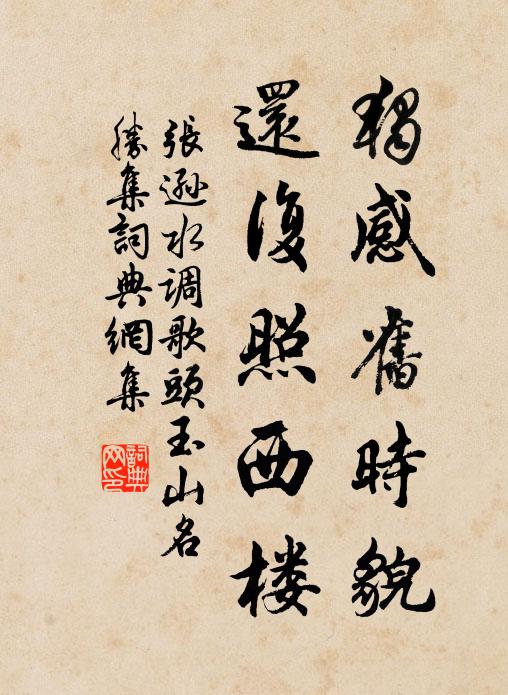 獨感舊時貌
還復照西楼
張遜水调歌頭玉山名
勝集詞典網集
詞典网印